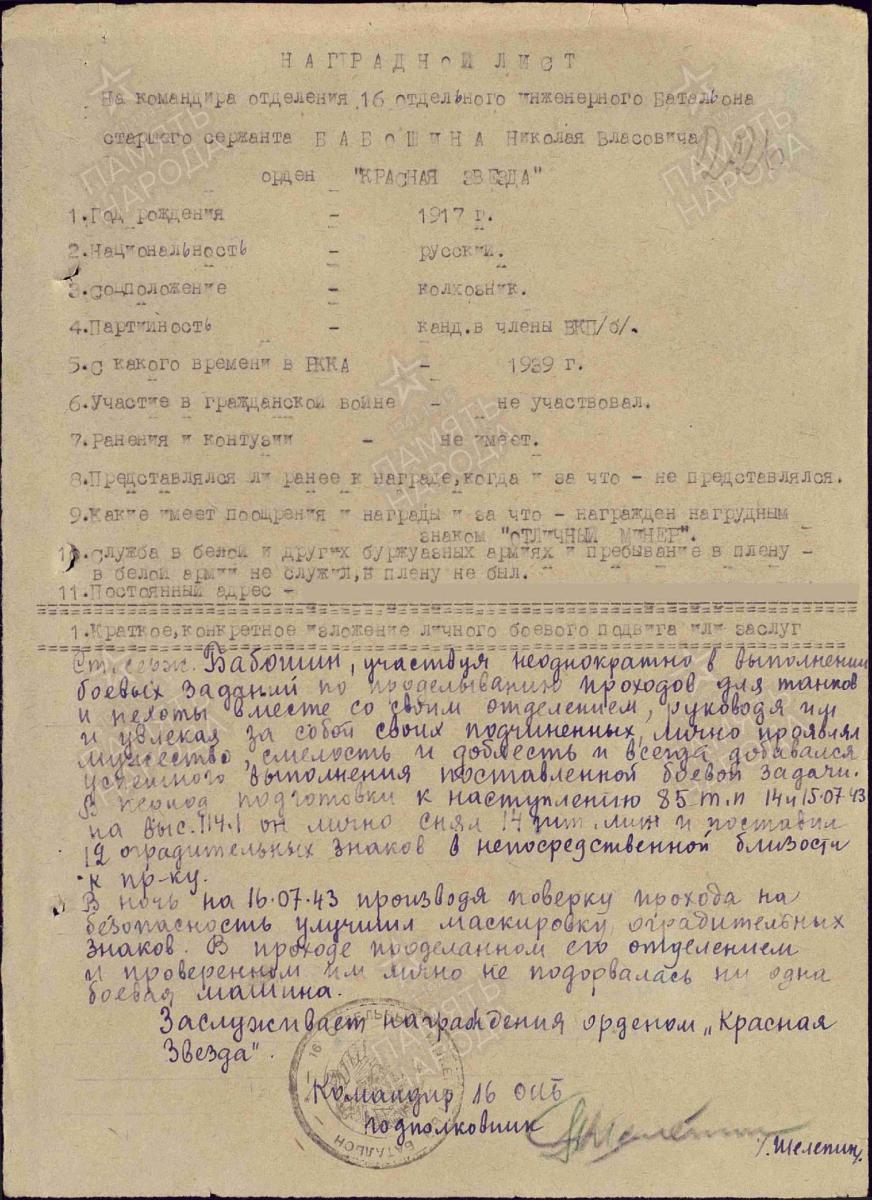 НАГРАДНОЙ ЛИСТ
На командира отделения 16 отдельного инженерного Батальона
старшего сержанта БАБОШИНА Николая Власовича
орден "КРАСНАЯ ЗВЕЗДА"
1.Год рождения - 1917 г.
2.Национальность - русский.
3.Соцположение - колхозник.
4.Партийность - канд.в члены ВКП/б/.
5.С какого времени в РККА - 1939 г.
6.Участие в гражданской войне - не участвовал.
7.Ранения и контузии - не имеет.
8.Представлялся ли ранее к награде,когда и за что - не представлялся.
9.Какие имеет поощрения и награды и за что - награжден нагрудным
знаком "ОТЛИЧНЫЙ МИНЕР".
10.Служба в белой и других буржуазных армиях и пребывание в плену -
в белой армии не служил,в плену не был.
11.Постоянный адрес -
1.Краткое,конкретное изложение личного боевого подвига или заслуг
Ст. серж. Бабошин, участвуя неоднократно в выполнении
боевых заданий по проделыванию проходов для танков
и пехоты вместе со своим отделением, руководя им
и увлекая за собой своих подчиненных, лично проявлял
мужество, смелость и доблесть и всегда добивался
успешного выполнения поставленной боевой задачи.
В период подготовки к наступлению 85 т.п 14 и 15.07.43
на выс. 114.1 он лично снял 14 шт. мин и поставил
12 оградительных знаков в непосредственной близости
к пр-ку.
В ночь на 16.07.43 производя поверку прохода на
безопасность улучшил маскировку оградительных
знаков. В проходе проделанном его отделением
и проверенном им лично не подорвалась ни одна
боевая машина.
Заслуживает награждения орденом „Красная
Звезда".
Командир 16 ОИБ
подполковник
/Шелепин/
БАТАЛЬОН
ПАМЯТЬ НАРОДА
ПАМЯТЬ НАРОДА
ПАМЯТЬ НАРОДА
ПАМЯТЬ НАРОДА